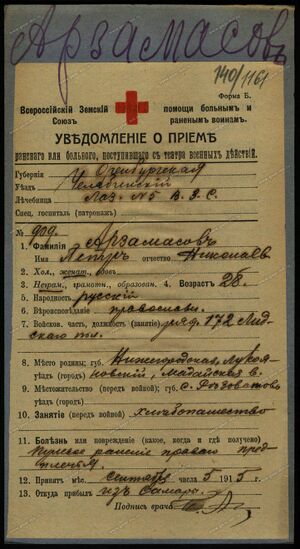 Арзамасовъ
140/1161
Форма Б.
Всероссійскій Земскій Союзъ
помощи больнымъ и раненымъ воинамъ.
УВѢДОМЛЕНІЕ О ПРІЕМѢ
раненаго или больного, поступившаго съ театра военныхъ дѣйствій.
Губернія Оренбургская
Уѣздъ Челябинскій
Лечебница Лаз. №5 В.З.С.
Спец. госпиталь (патронажъ)
№ 909.
1. Фамилія Арзамасовъ
Имя Петръ отчество Николаев
2. Хол., женат., вдов.
3. Неграм., грамотн., образован. 4. Возрастъ 28.
5. Народность русскій
6. Вѣроисповѣданіе православн.
7. Войсков. часть, должность (занятіе) ряд. 172 Лид-
скаго пол.
8. Мѣсто родины: губ. Нижегородская, Лукоя-
уѣздъ (городъ) новскій, Мадайская в.
9. Мѣстожительство (передъ войной): губ. с. Розоватово
уѣздъ (городъ)
10. Занятіе (передъ войной) хлебопашество
11. Болѣзнь или поврежденіе (какое, когда и гдѣ получено)
Пулевое раненіе праваго пред-
плечья.
12. Принятъ мѣс. сентября числа 5 1915 г.
13. Откуда прибылъ изъ Самары.
Подпись врача